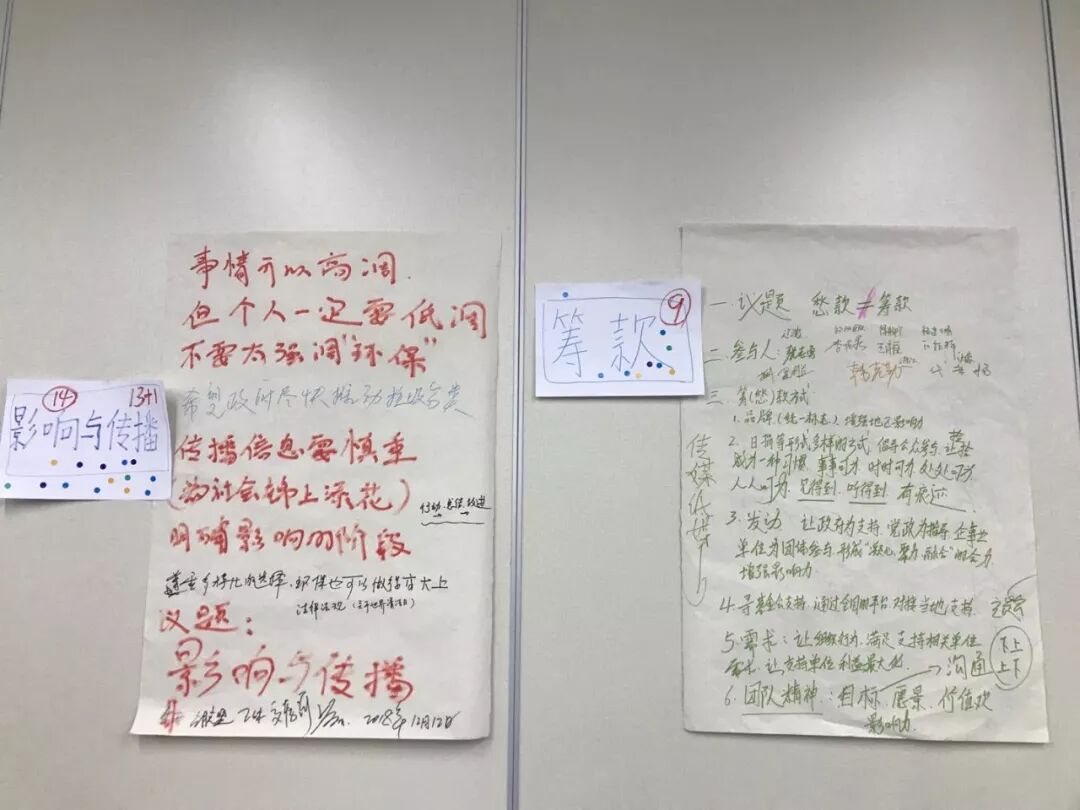 14
13+1
影响与传播
事情可以高调.
但个人一定要低调
不要太强调“环保”
希望政府尽快推动垃圾分类
传播信息要慎重
(为社会锦上添花)
行动→总结→改进
明确影响的阶段
尊重多样化的选择,环保也可以做得高大上
法律法规
议题:
影响与传播
2018年12月12日
9
筹款
一.议题 愁款≠筹款
二.参与人:
三.筹(愁)款方式
1.品牌(统一标志)增强地区影响力
2.日捐等形式多样的方式,倡导公众参与,
成为一种习惯,事事可为,时时可为,处处可为
人人可为,见得到,听得到,有痕迹.
3.发动 让政府为支持,党政为指导,企事业
单位为团体参与,形成“凝心,聚力,融合”的合力
增强影响力
4.寻基金会支持,通过全国的平台,对接当地支持.
5.需求:让组织行为,满足支持相关单位
需求,让支持单位利益最大化. →沟通
下上
上下
6.团队精神:目标,愿景,价值观
影响力.
传媒